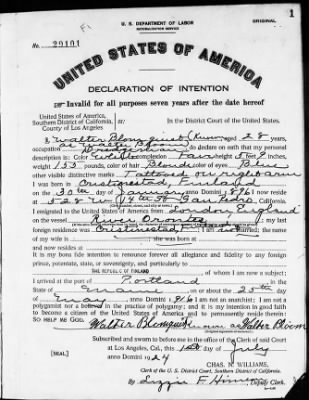 1
U. S. DEPARTMENT OF LABOR
NATURALIZATION SERVICE
ORIGINAL
No. 29101
UNITED STATES OF AMERICA
DECLARATION OF INTENTION
Invalid for all purposes seven years after the date hereof
United States of America,
Southern District of California, ss:
County of Los Angeles
In the District Court of the United States.
I, Walter Blomquist (Known, aged 28 years,
as Walter Bloom
occupation, do declare on oath that my personal
description is: Color White, complexion Fair, height 5 feet 9 inches,
weight 155 pounds, color of hair Blonde, color of eyes Blue
other visible distinctive marks Tattooed on right arm
I was born in Finland
on the 30th day of January, anno Domini 1896; I now reside
at 528 W 14th St San Pedro, California.
I emigrated to the United States of America from London, England
on the vessel River Orontes; my last
foreign residence was; I am not married; the name
of my wife is; she was born at
and now resides at
It is my bona fide intention to renounce forever all allegiance and fidelity to any foreign
prince, potentate, state, or sovereignty, and particularly to
THE REPUBLIC OF FINLAND, of whom I am now a subject;
I arrived at the port of Portland, in the
State of Maine, on or about the 25th day
of May, anno Domini 1916; I am not an anarchist; I am not a
polygamist nor a believer in the practice of polygamy; and it is my intention in good faith
to become a citizen of the United States of America and to permanently reside therein:
SO HELP ME GOD.
Walter Blomquist known as Walter Bloom
Subscribed and sworn to before me in the office of the Clerk of said Court
at Los Angeles, Cal., this 1st day of July
[SEAL]
anno Domini 1924
CHAS. N. WILLIAMS,
Clerk of the U. S. District Court, Southern District of California.
By Lizzie F. Deputy Clerk.